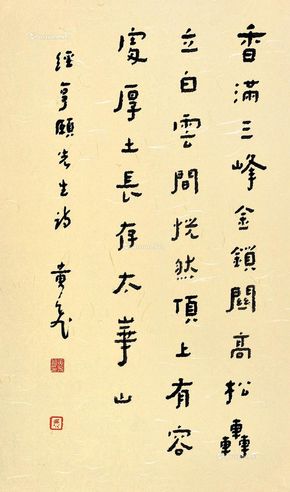 香滿三峰金鎖關高松轟
立白雲間恍然頂上有容
處厚土長存太華山
經亨頤先生詩 黄